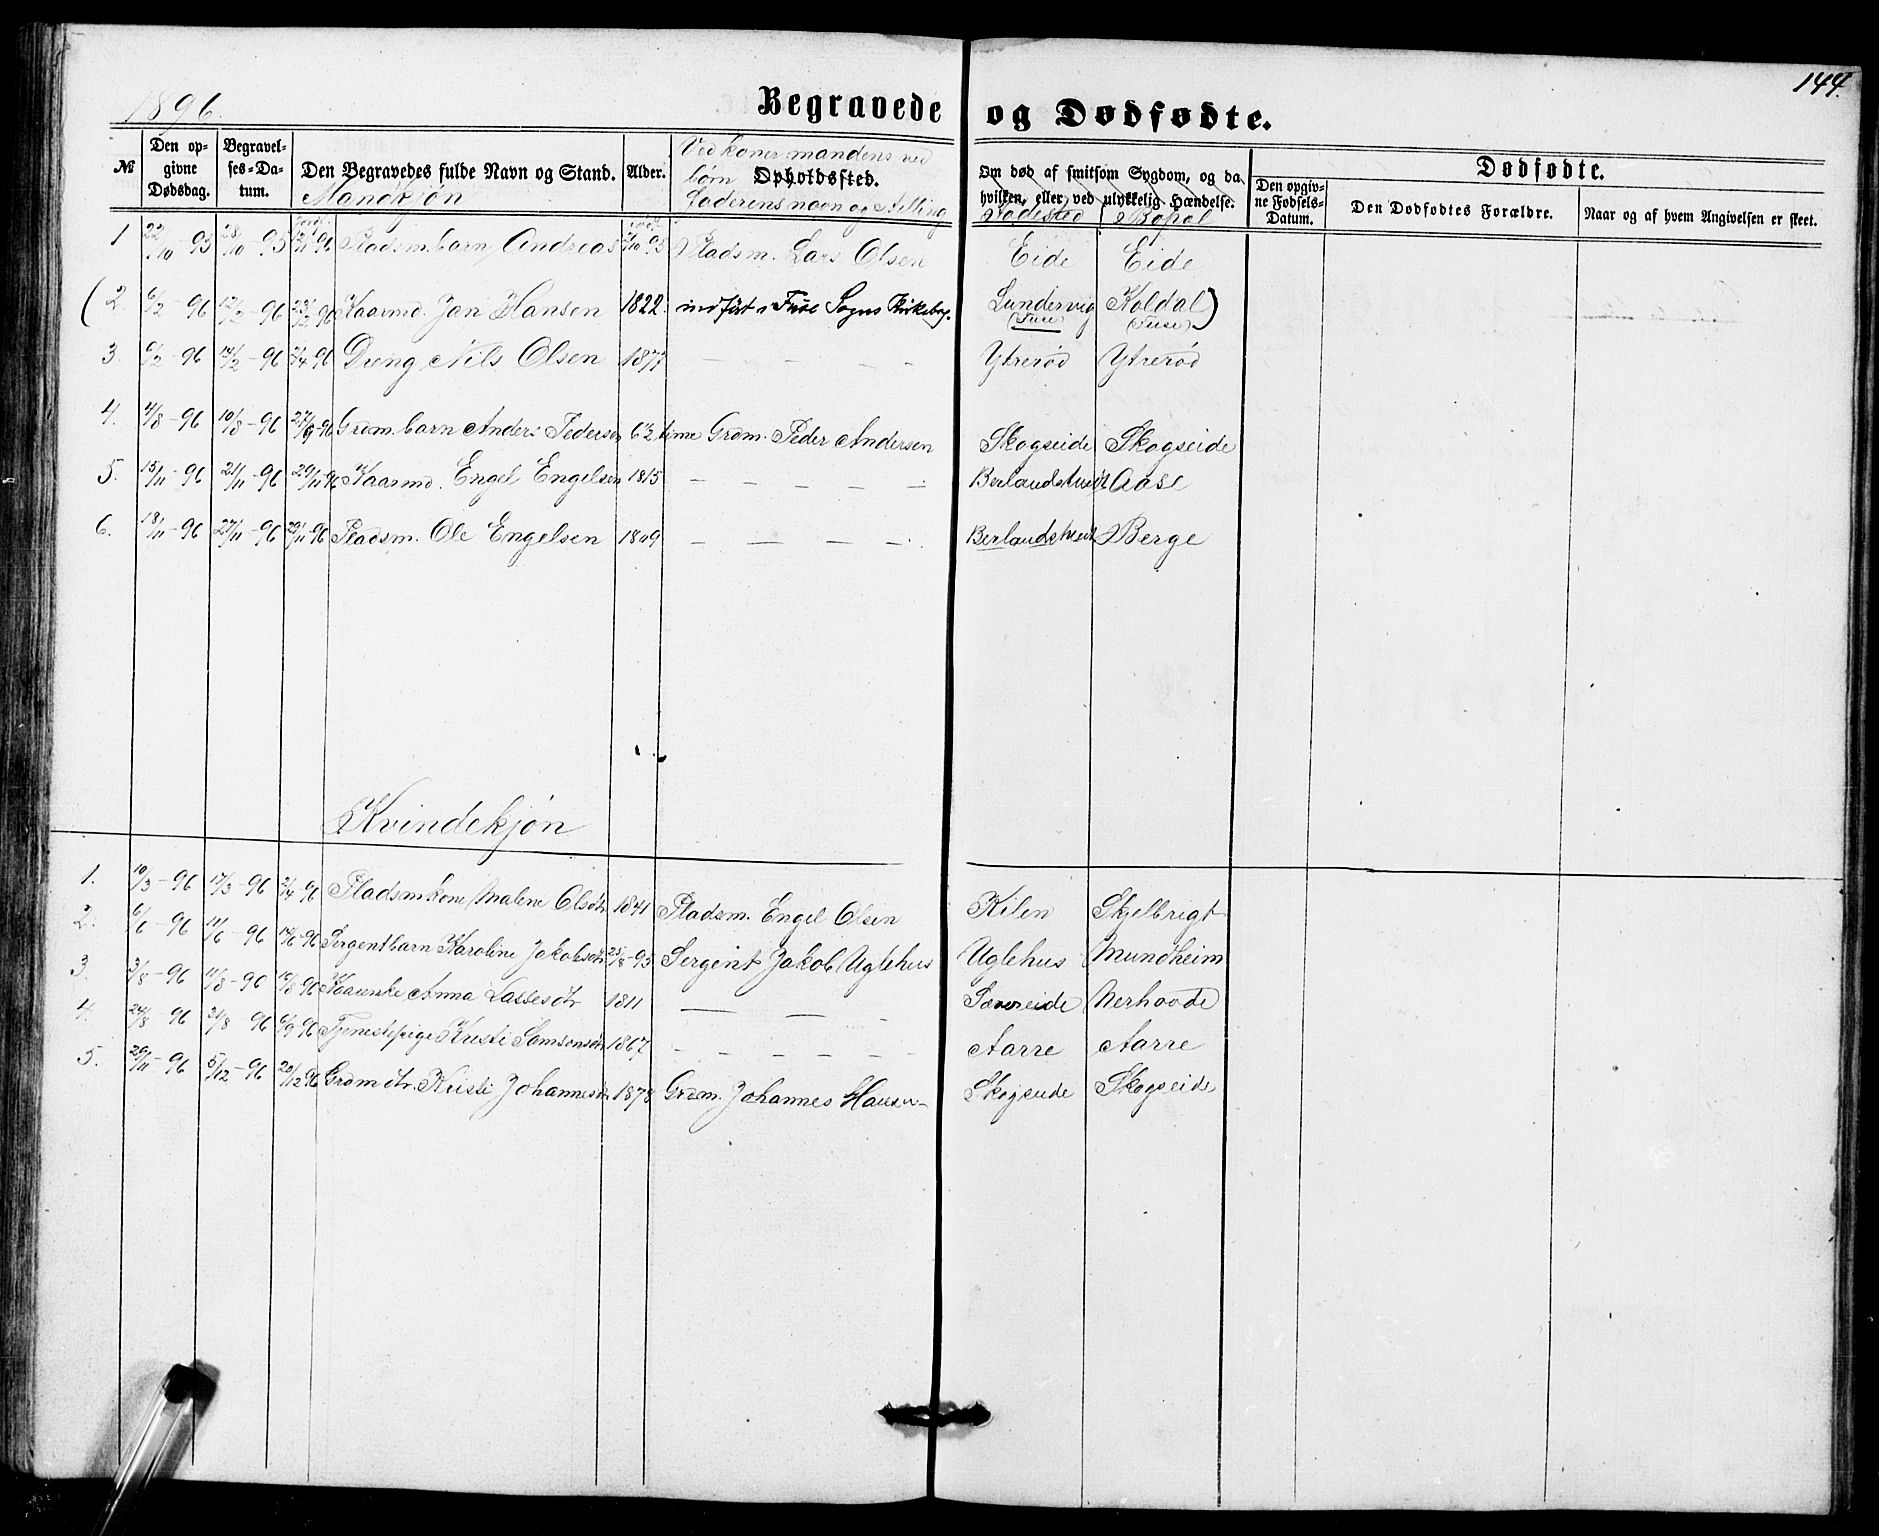 144.
1896.
Begravede og Dødfødte.
№ Den opgivne Dødsdag. Begravelses-Datum. Den Begravedes fulde Navn og Stand. Alder. Opholdssted. Om død af smitsom Sygdom, og da hvilken, eller ved ulykkelig Hændelse. Dødfødte.
Den opgivne Fødsels-Datum. Den Dødfødtes Forældre. Naar og af hvem Angivelsen er skeet.
Mandkjøn
Ved koner mandens ved
børn
faderens navn og stilling
Fødested Bopal
1 22/10 95 28/10 95 Pladsm. barn Andreas 95 Pladsm. Lars Olsen Eide Eide
(2. 6/2 - 96 12/2 - 96 23/2 96 Kaarmd. Jan Hansen 1822. indført i Fuse Sogns Kirkebog. Lundervig (Fuse) Koldal (Fuse))
3. 6/2 - 96 14/2 - 96 /4 96 Dreng Nils Olsen 1877 — — — — Ytrerød Ytrerød
4. 4/8 - 96 10/8 - 96 27/9 - 96 Grdm. barn Anders Pedersen 6½ time Grdm. Peder Andersen Skogseide Skogseide
5. 15/11 - 96 21/11 - 96 29/11 - 96 Kaarmd. Engel Engelsen 1815 — — — — — Aase
6. 18/11 - 96 27/11 - 96 29/11 - 96 Pladsm. Ole Engelsen 1809 — — — — Berge
Kvindekjøn
1. 10/3 - 96 17/3 - 96 /4 96 Pladsmkone Malene Olsdtr 1841 Pladsm. Engel Olsen Kilen Skjelbrigt
2. 6/6 - 96 11/6 - 96 14/6 96 Sergentbarn Karoline Jakobsdtr 25/8 - 95 Sergent Jakob Uglehus Uglehus Mundheim
3. 3/8 - 96 11/8 - 96 16/8 96 Anna Lassesdtr 1811 — — — Sævareide Nerhovde
4. 24/8 - 96 31/8 - 96 6/9 96 Tjenestepige Kristi Samsonsdtr 1867 — — — — — — Aarre Aarre
5. 29/11 - 96 5/12 - 96 20/12 96 Grdm dtr. Kristi Johannesdtr 1878 Grdm. Johannes Hansen Skogseide Skogseide